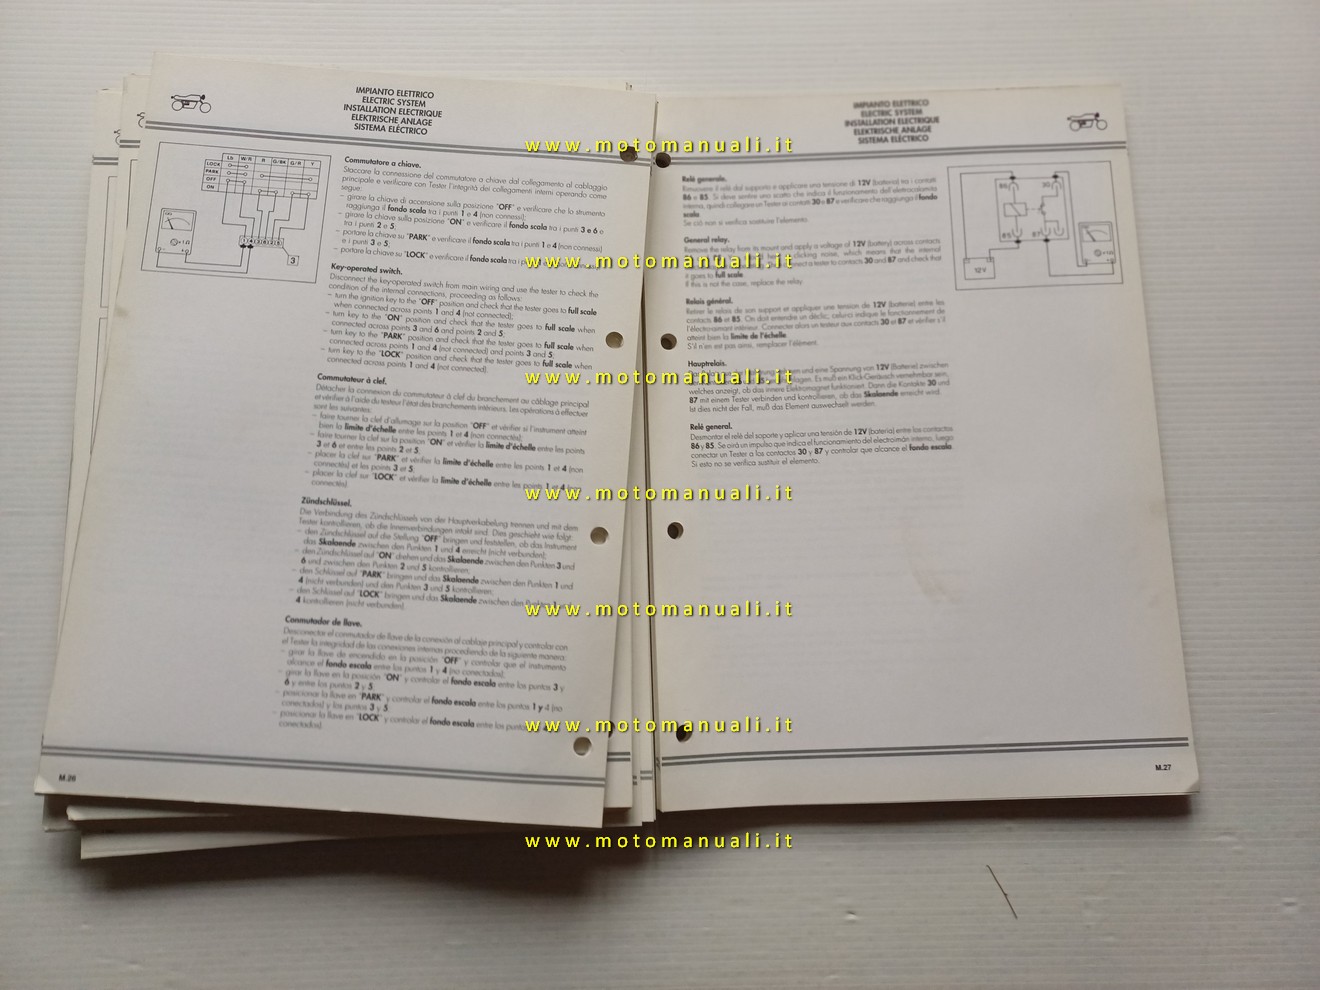 IMPIANTO ELETTRICO
ELECTRIC SYSTEM
INSTALLATION ELECTRIQUE
ELEKTRISCHE ANLAGE
SISTEMA ELÉCTRICO
Lb W/R R G/BK G/R Y
LOCK
PARK
OFF
ON
3
Commutatore a chiave.
Staccare la connessione del commutatore a chiave dal collegamento al cablaggio
principale e verificare con Tester l'integrità dei collegamenti interni operando come
segue:
– girare la chiave di accensione sulla posizione "OFF" e verificare che lo strumento
raggiunga il fondo scala tra i punti 1 e 4 (non connessi);
– girare la chiave sulla posizione "ON" e verificare il fondo scala tra i punti 3 e 6 e
tra i punti 2 e 5;
– portare la chiave su "PARK" e verificare il fondo scala tra i punti 1 e 4 (non connessi)
e i punti 3 e 5;
– portare la chiave su "LOCK" e verificare il fondo scala tra i
Key-operated switch.
Disconnect the key-operated switch from main wiring and use the tester to check the
condition of the internal connections, proceeding as follows:
– turn the ignition key to the "OFF" position and check that the tester goes to full scale
when connected across points 1 and 4 (not connected);
– turn key to the "ON" position and check that the tester goes to full scale when
connected across points 3 and 6 and points 2 and 5;
– turn key to the "PARK" position and check that the tester goes to full scale when
connected across points 1 and 4 (not connected) and points 3 and 5;
– turn key to the "LOCK" position and check that the tester goes to full scale when
connected across points 1 and 4 (not connected).
Commutateur à clef.
Détacher la connexion du commutateur à clef du branchement au câblage principal
et vérifier à l'aide du testeur l'état des branchements intérieurs. Les opérations à effectuer
sont les suivantes:
– faire tourner la clef d'allumage sur la position "OFF" et vérifier si l'instrument atteint
bien la limite d'échelle entre les points 1 et 4 (non connectés);
– faire tourner la clef sur la position "ON" et vérifier la limite d'échelle entre les points
3 et 6 et entre les points 2 et 5;
– placer la clef sur "PARK" et vérifier la limite d'échelle entre les points 1 et 4 (non
connectés) et les points 3 et 5;
– placer la clef sur "LOCK" et vérifier la limite d'échelle entre les points 1 et 4 (non
connectés).
Zündschlüssel.
Die Verbindung des Zündschlüssels von der Hauptverkabelung trennen und mit dem
Tester kontrollieren, ob die Innenverbindungen intakt sind. Dies geschieht wie folgt:
– den Zündschlüssel auf die Stellung "OFF" bringen und feststellen, ob das Instrument
das Skalaende zwischen den Punkten 1 und 4 erreicht (nicht verbunden);
– den Zündschlüssel auf "ON" drehen und das Skalaende zwischen den Punkten 3 und
6 und zwischen den Punkten 2 und 5 kontrollieren;
– den Schlüssel auf "PARK" bringen und das Skalaende zwischen den Punkten 1 und
4 (nicht verbunden) und den Punkten 3 und 5 kontrollieren;
– den Schlüssel auf "LOCK" bringen und das Skalaende zwischen den Punkten 1 und
4 kontrollieren (nicht verbunden).
Conmutador de llave.
Desconectar el conmutador de llave de la conexión al cablaje principal y controlar con
el Tester la integridad de las conexiones internas procediendo de la siguiente manera:
– girar la llave de encendido en la posición "OFF" y controlar que el instrumento
alcance el fondo escala entre los puntos 1 y 4 (no conectados);
– girar la llave en la posición "ON" y controlar el fondo escala entre los puntos 3 y
6 y entre los puntos 2 y 5.
– posicionar la llave en "PARK" y controlar el fondo escala entre los puntos 1 y 4 (no
conectados) y los puntos 3 y 5.
– posicionar la llave en "LOCK" y controlar el fondo escala entre los puntos
conectados).
M.26
IMPIANTO ELETTRICO
ELECTRIC SYSTEM
INSTALLATION ELECTRIQUE
ELEKTRISCHE ANLAGE
SISTEMA ELÉCTRICO
Relè generale.
Rimuovere il relè dal supporto e applicare una tensione di 12V (batteria) tra i contatti
86 e 85. Si deve sentire uno scatto che indica il funzionamento dell'elettrocalamita
interna, quindi collegare un Tester ai contatti 30 e 87 e verificare che raggiunga il fondo
scala.
Se ciò non si verifica sostituire l'elemento.
General relay.
Remove the relay from its mount and apply a voltage of 12V (battery) across contacts
clicking noise, which means that the internal
connect a tester to contacts 30 and 87 and check that
it goes to full scale.
If this is not the case, replace the relay.
Relais général.
Retirer le relais de son support et appliquer une tension de 12V (batterie) entre les
contacts 86 et 85. On doit entendre un déclic; celui-ci indique le fonctionnement de
l'électro-aimant intérieur. Connecter alors un testeur aux contacts 30 et 87 et vérifier s'il
atteint bien la limite de l'échelle.
S'il n'en est pas ainsi, remplacer l'élément.
Hauptrelais.
und eine Spannung von 12V (Batterie) zwischen
Es muß ein Klick-Geräusch vernehmbar sein,
welches anzeigt, ob das innere Elektromagnet funktioniert. Dann die Kontakte 30 und
87 mit einem Tester verbinden und kontrollieren, ob das Skalaende erreicht wird.
Ist dies nicht der Fall, muß das Element auswechselt werden.
Relé general.
Desmontar el relé del soporte y aplicar una tensión de 12V (batería) entre los contactos
86 y 85. Se oirá un impulso que indica el funcionamiento del electroimán interno, luego
conectar un Tester a los contactos 30 y 87 y controlar que alcance el fondo escala.
Si esto no se verifica sustituir el elemento.
86 30
85 87
12V
M.27
www.motomanuali.it
www.motomanuali.it
www.motomanuali.it
www.motomanuali.it
www.motomanuali.it
www.motomanuali.it
www.motomanuali.it